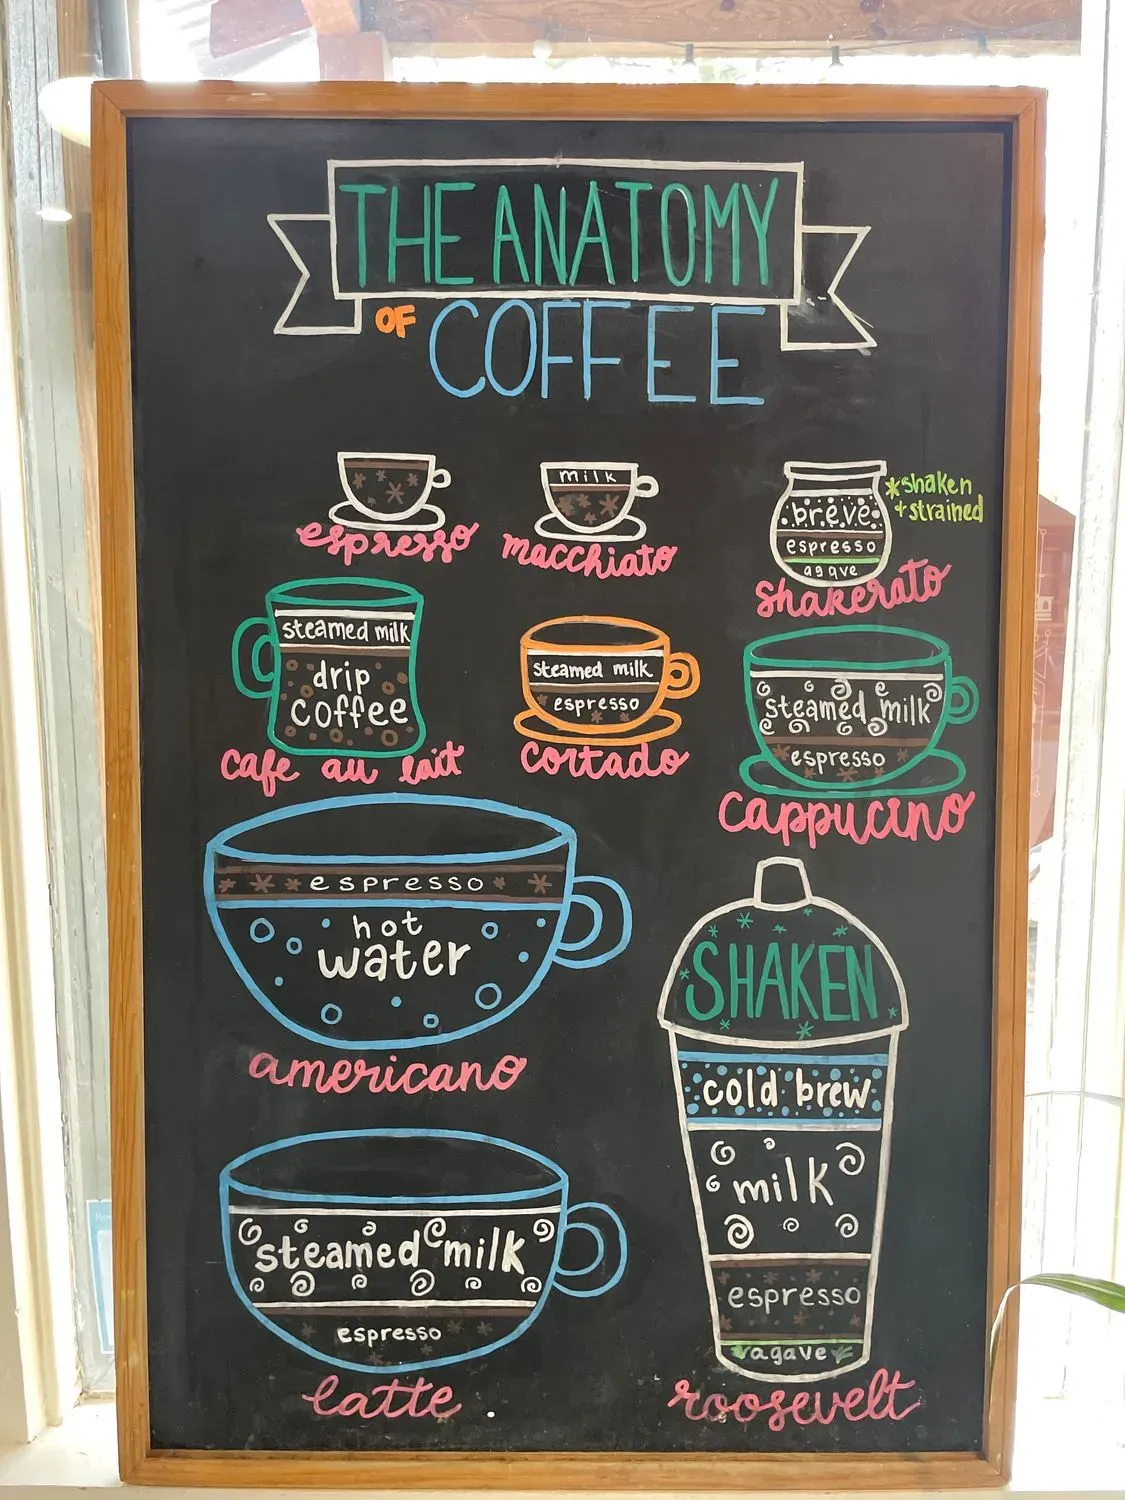 THE ANATOMY
OF COFFEE
espresso
milk
macchiato
breve
espresso
agave
*shaken
+ strained
shakerato
steamed milk
drip
coffee
cafe au lait
steamed milk
espresso
cortado
steamed milk
espresso
cappucino
espresso
hot
water
americano
SHAKEN
cold brew
milk
espresso
agave
roosevelt
steamed milk
espresso
latte